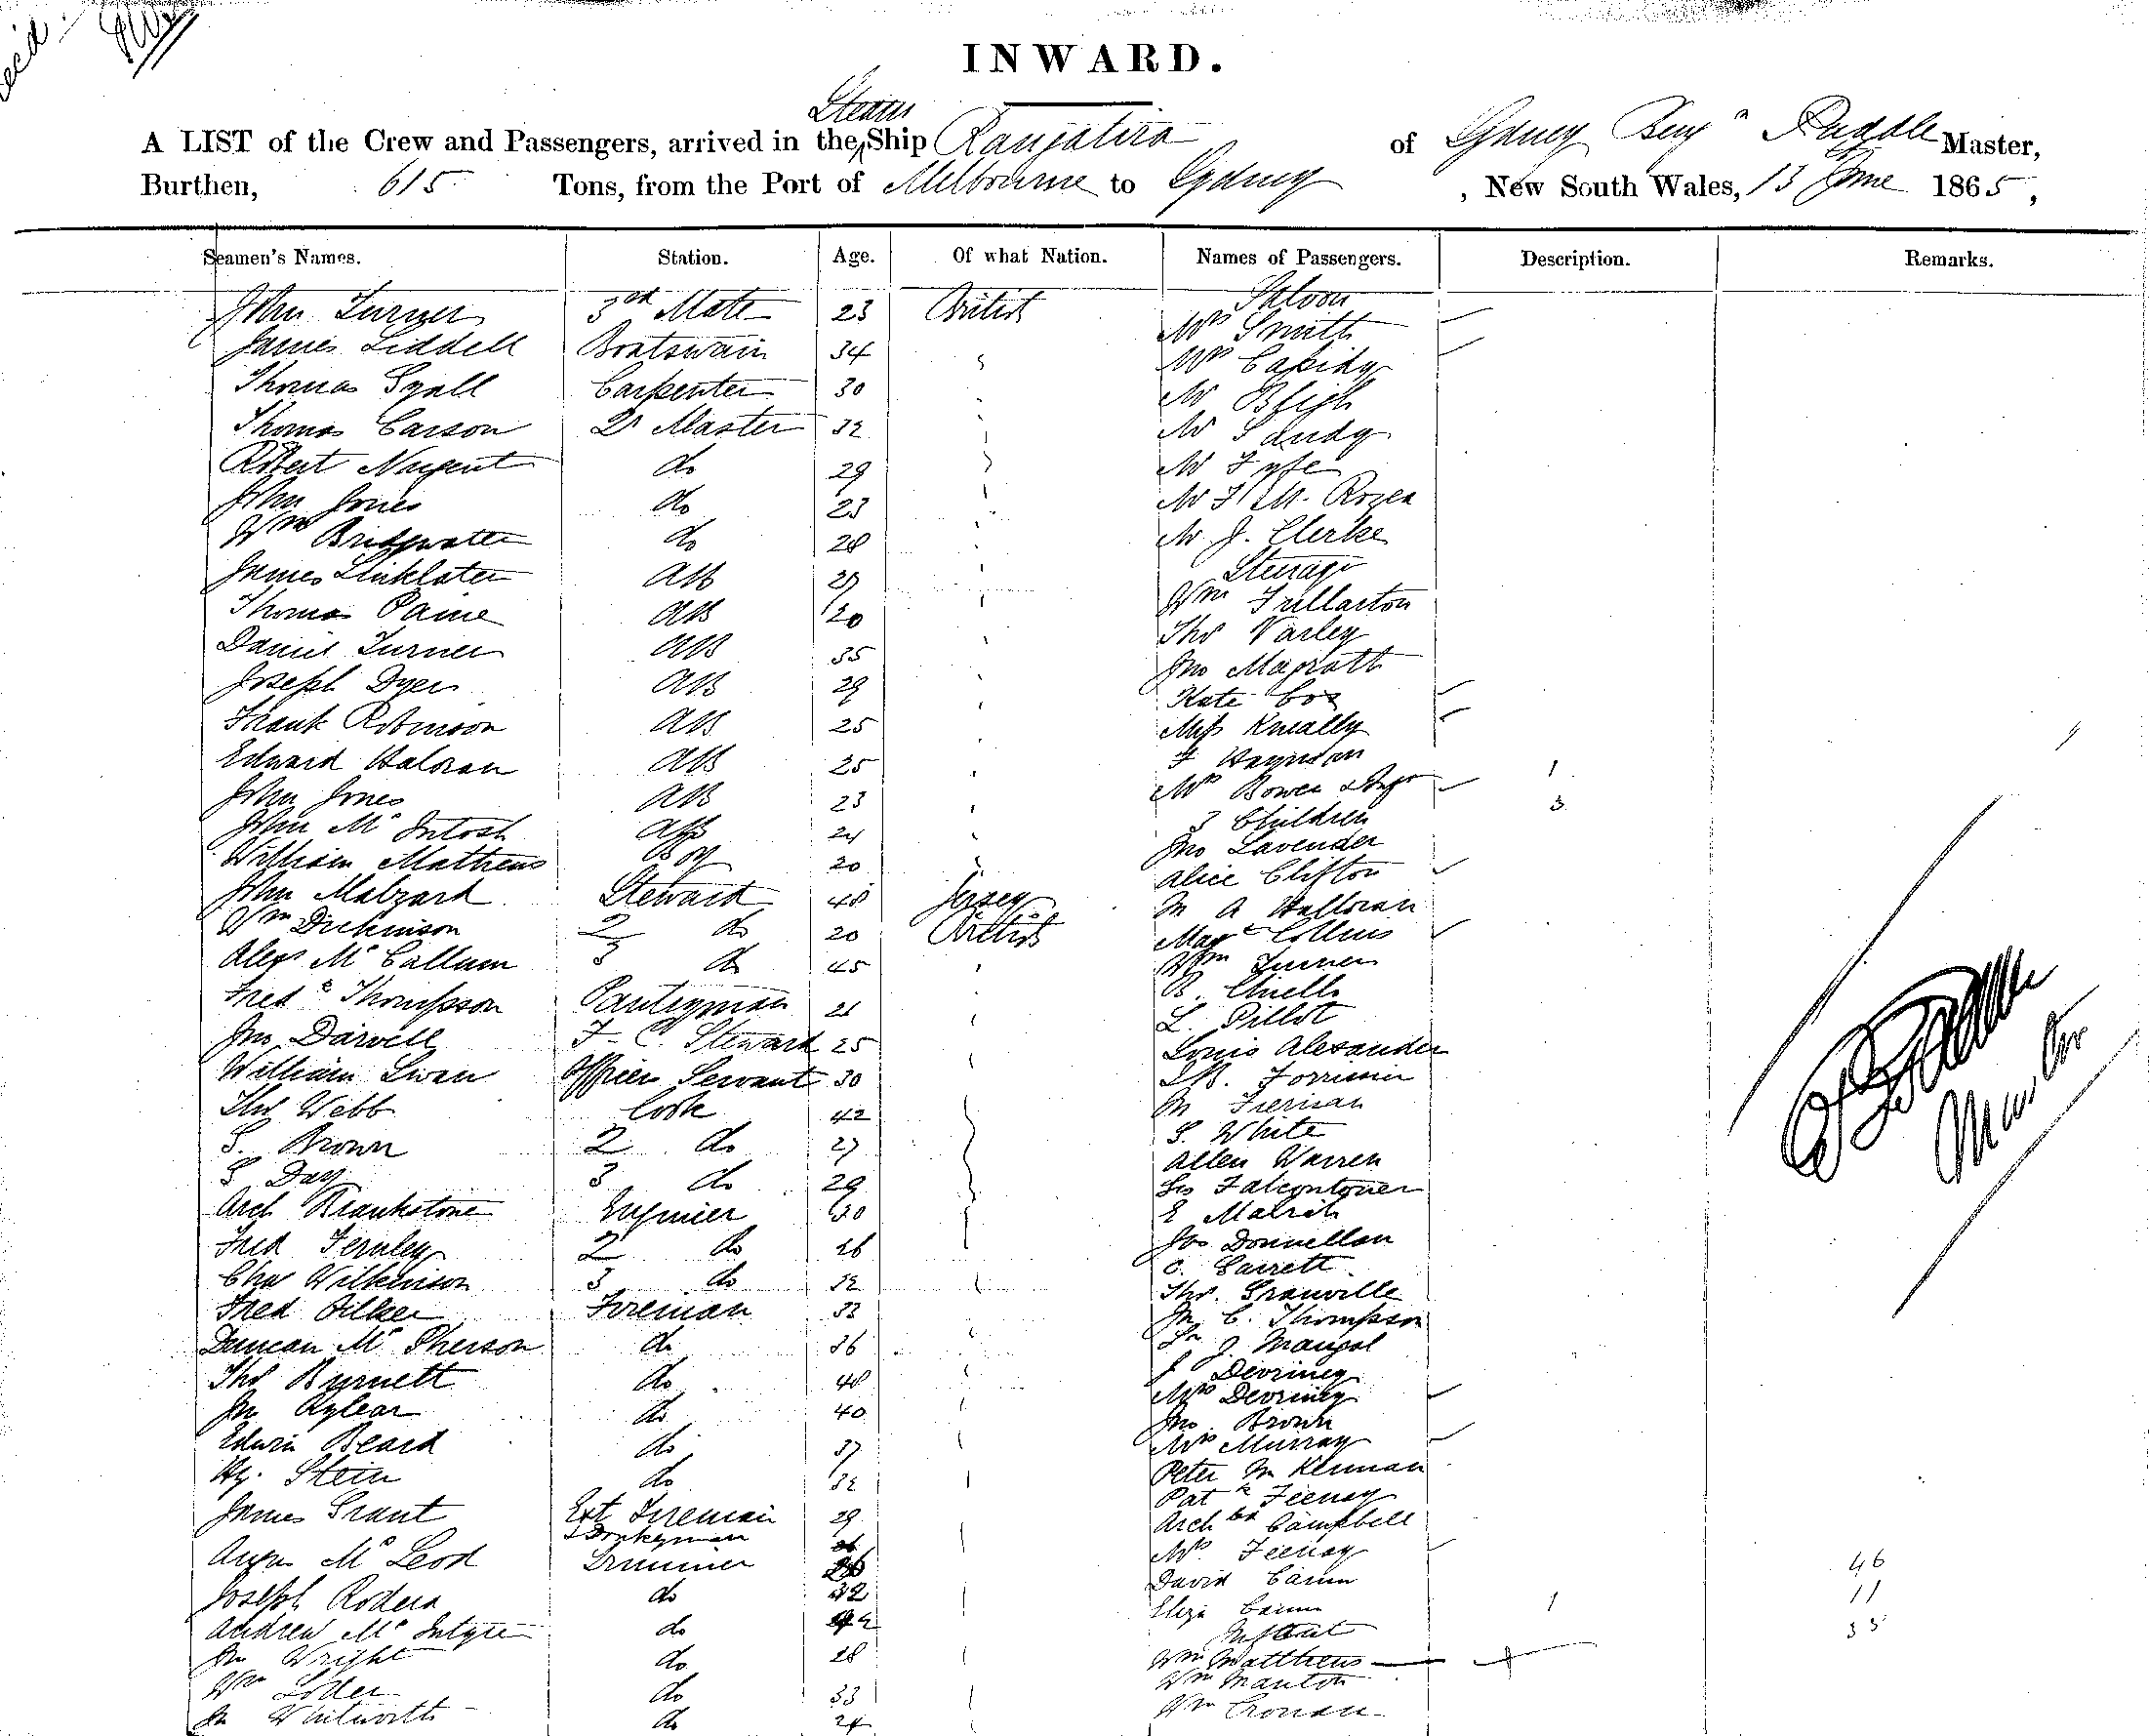 INWARD.
Steam
A LIST of the Crew and Passengers, arrived in the Ship Rangatira of Sydney Benjn Paddle Master,
Burthen, 615 Tons, from the Port of Melbourne to Sydney, New South Wales, 13 June 1865,
Seamen's Names. Station. Age. Of what Nation. Names of Passengers. Description. Remarks.
Saloon
John Turner 3rd Mate 23 British Mrs Smith
James Liddell Boatswain 34 Mrs Cassidy
Thomas Syall Carpenter 30 Mr Bligh
Thomas Carson Qr Master 32 Mr Sandy
Robert Nugent do 29 Mr Fyfe
John Jones do 23 Mr F M. Rozea
Wm Bridgwater do 28 Mr J. Clerke
James Linklater AB 29 Steerage
Thomas Paine AB 20 Wm Fullarton
Daniel Turner AB 35 Thos Varley
Joseph Dyer AB 29 Jno Magrath
Frank Robinson AB 25 Kate Cox
Edward Haloran AB 25 Miss Kneally
John Jones AB 23 F
John McIntosh AB 24 Mrs Bowen 1
William Mathews Boy 20 3 Children 3
John Mabzard Steward 48 Jersey Jno Lavender
Wm Dickinson 2 do 20 British Alice Clifton
Alexr McCallum 3 do 45 M A Halloran
Fredk Thompson Pantryman 21 Margt Collins
Jno Darvell F. C. Steward 25 Wm Turner
William Swan Officers Servant 30 B.
Thos Webb Cook 42 L. Pillot
S. Brown 2 do 27 Louis Alexander
S Day 3 do 29
Arch Brankstone Engineer 30 M
Fred Fernley 2 do 26 S. White
Chas Wilkinson 3 do 32 Allen Warren
Fred Fireman 33
Duncan McPherson do 36 E
Thos Burnett do 40 Jos Donnellan
Jn do 40 C. Garrett
Edwin Beard do 37 Thos. Granville
Hy. Stein do 32 Jn C. Thompson
James Grant Ext Fireman 29 J. Mangol
& Donkeyman J Devriney
Angus McLeod Trimmer 26 Mrs Devriney
Joseph Rodera do 32 Jno. Brown
Andrew McIntyre do 42 Mrs Murray
Jn Wright do 28 Peter
Wm Loder do 33 Patk Feeney
Jn Whitworth do 24 Archbd Campbell
Mrs Feeney 46
David 11
Eliza 1
Infant 35
Wm Matthews
Wm Manton
Wm Cronan
Master